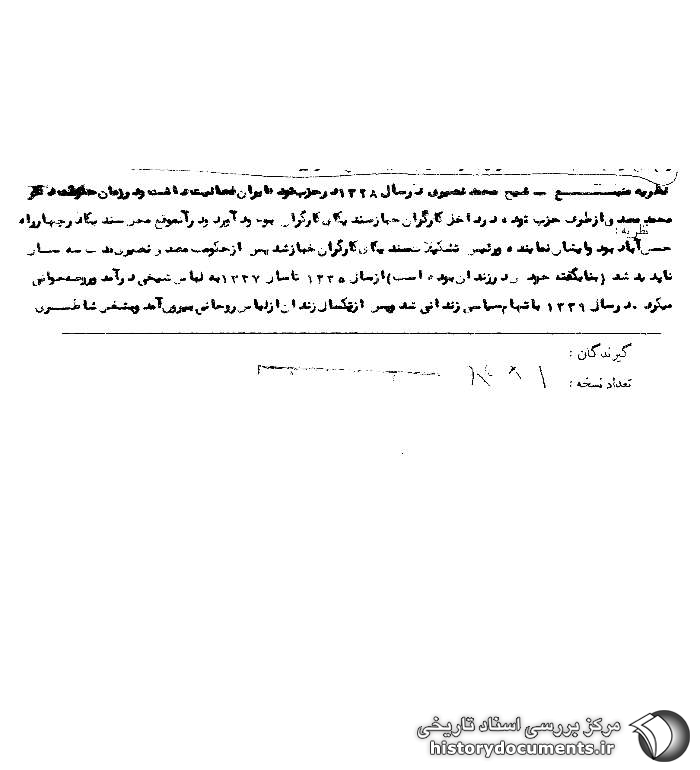 نظریه منبع – شیخ محمد نصیری در سال ۱۳۲۸ در حزب توده ایران فعالیت داشت و در زمان حکومت دکتر
محمد مصدق از طرف حزب توده در داخل کارگران خباز سندیکای کارگران بوجود آورد و در آنموقع محل سندیکا در چهارراه
نظریه :
حسن آباد بود و ایشان نماینده و رئیس تشکیلات سندیکای کارگران خباز شد پس از حکومت مصدق نصیری مدت سه سال
ناپدید شد (بنا بگفته خودش در زندان بوده است) از سال ۱۳۳۵ تا سال ۱۳۳۷ به لباس شیخی درآمد و روضه خوانی
میکرد . در سال ۱۳۳۹ باتهام سیاسی زندانی شد و پس از یکسال زندان از لباس روحانی بیرون آمد و بشغل شاطری
گیرندگان :
تعداد نسخه :
مرکز بررسی اسناد تاریخی
historydocuments.ir